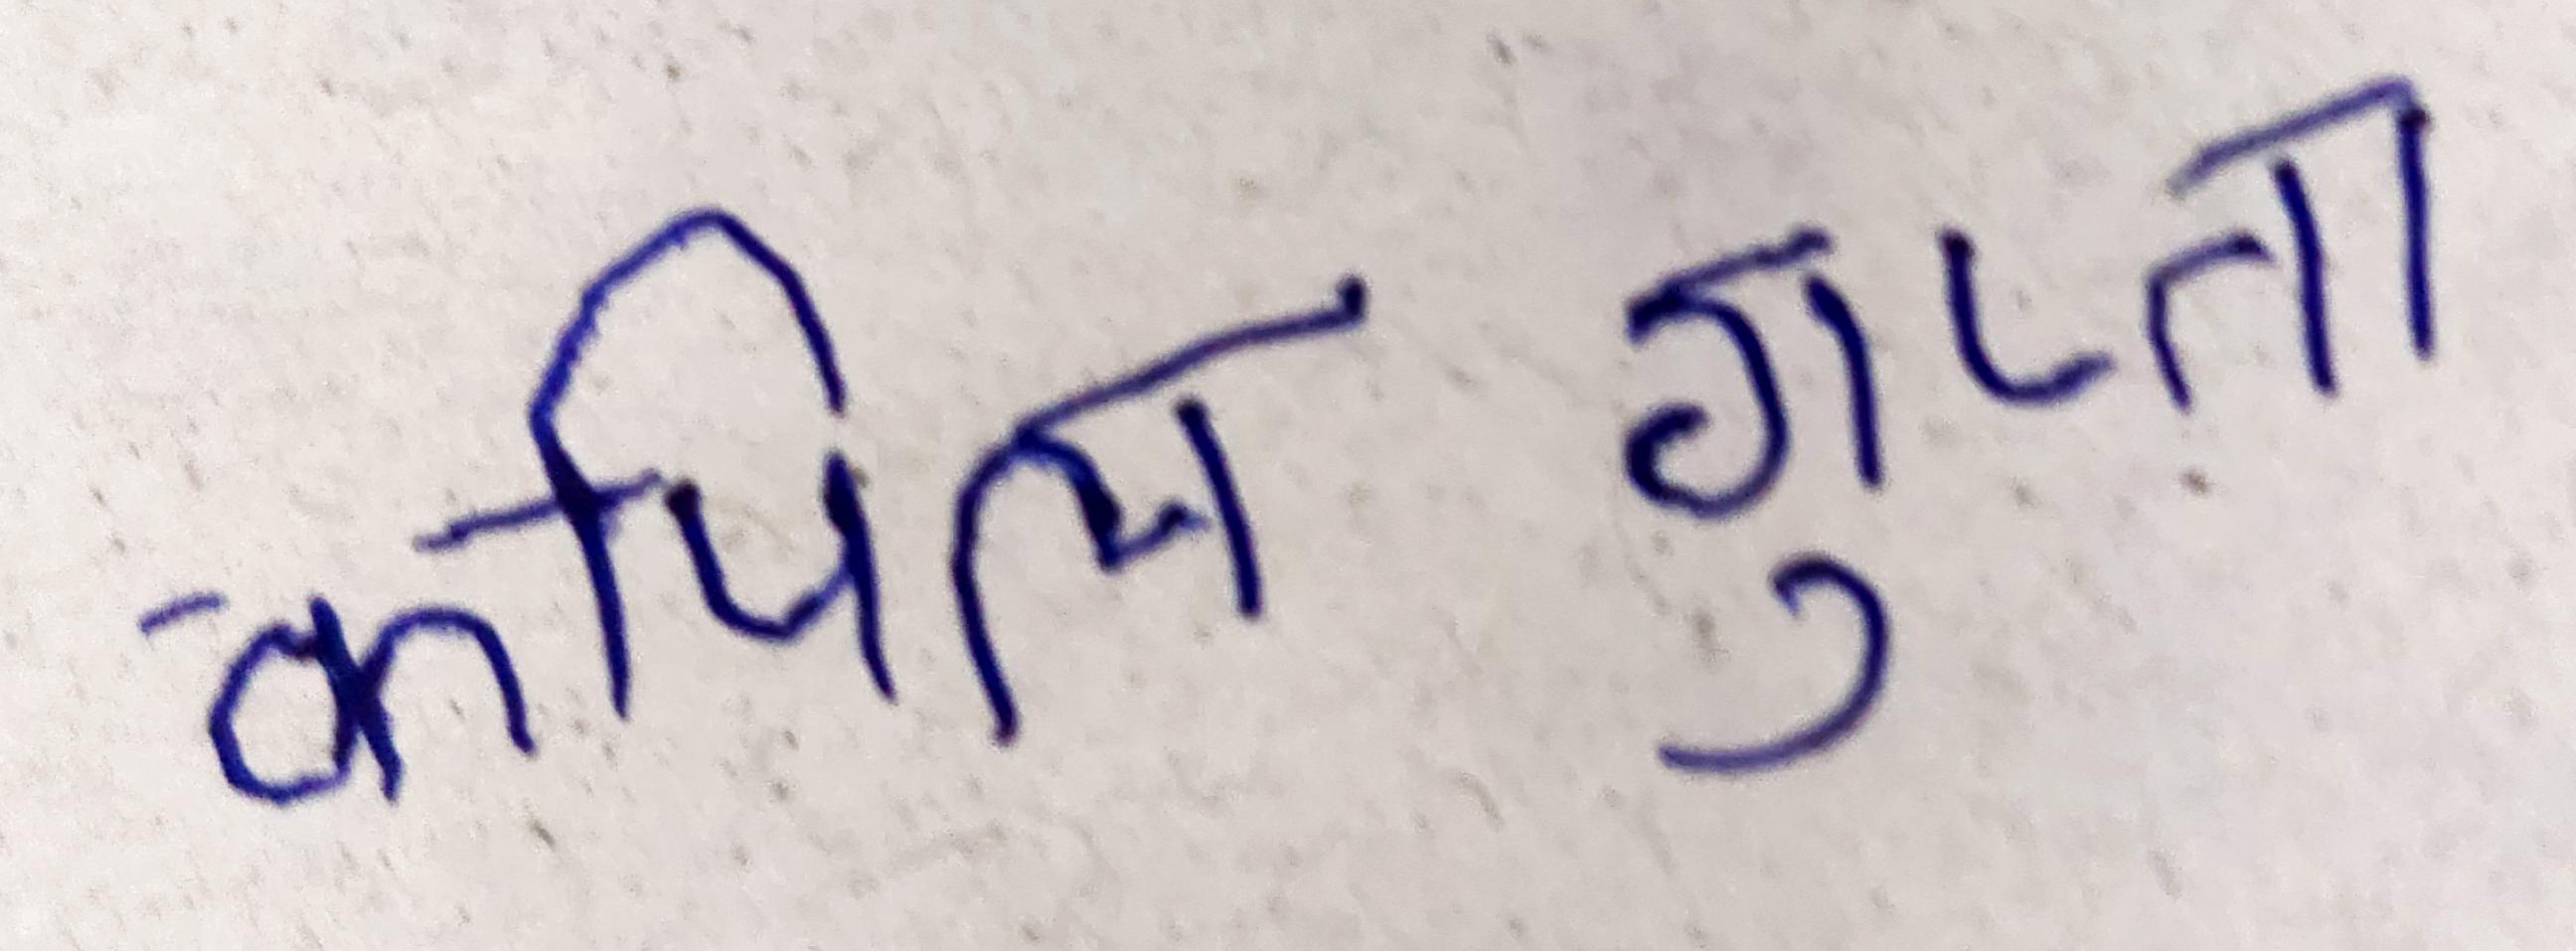 कपिल गुप्ता